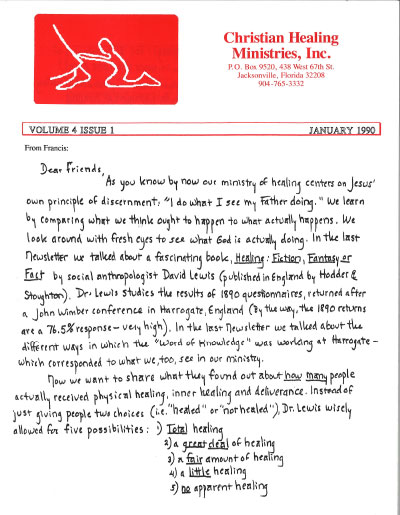 Christian Healing
Ministries, Inc.
P.O. Box 9520, 438 West 67th St.
Jacksonville, Florida 32208
904-765-3332
VOLUME 4 ISSUE 1 JANUARY 1990
From Francis:
Dear friends,
As you know by now our ministry of healing centers on Jesus'
own principle of discernment: "I do what I see my Father doing." We learn
by comparing what we think ought to happen to what actually happens. We
look around with fresh eyes to see what God is actually doing. In the last
Newsletter we talked about a fascinating book, Healing: Fiction, Fantasy or
Fact by social anthropologist David Lewis (published in England by Hodder &
Stoughton). Dr. Lewis studies the results of 1890 questionnaires, returned after
a John Wimber conference in Harrogate, England (By the way, the 1890 returns
are a 76.5% response - very high). In the last Newsletter we talked about the
different ways in which the "Word of Knowledge" was working at Harrogate -
which corresponded to what we, too, see in our ministry.
Now we want to share what they found out about how many people
actually received physical healing, inner healing and deliverance. Instead of
just giving people two choices (i.e. "healed" or "not healed"), Dr. Lewis wisely
allowed for five possibilities: 1) Total healing
2) a great deal of healing
3) a fair amount of healing
4) a little healing
5) no apparent healing